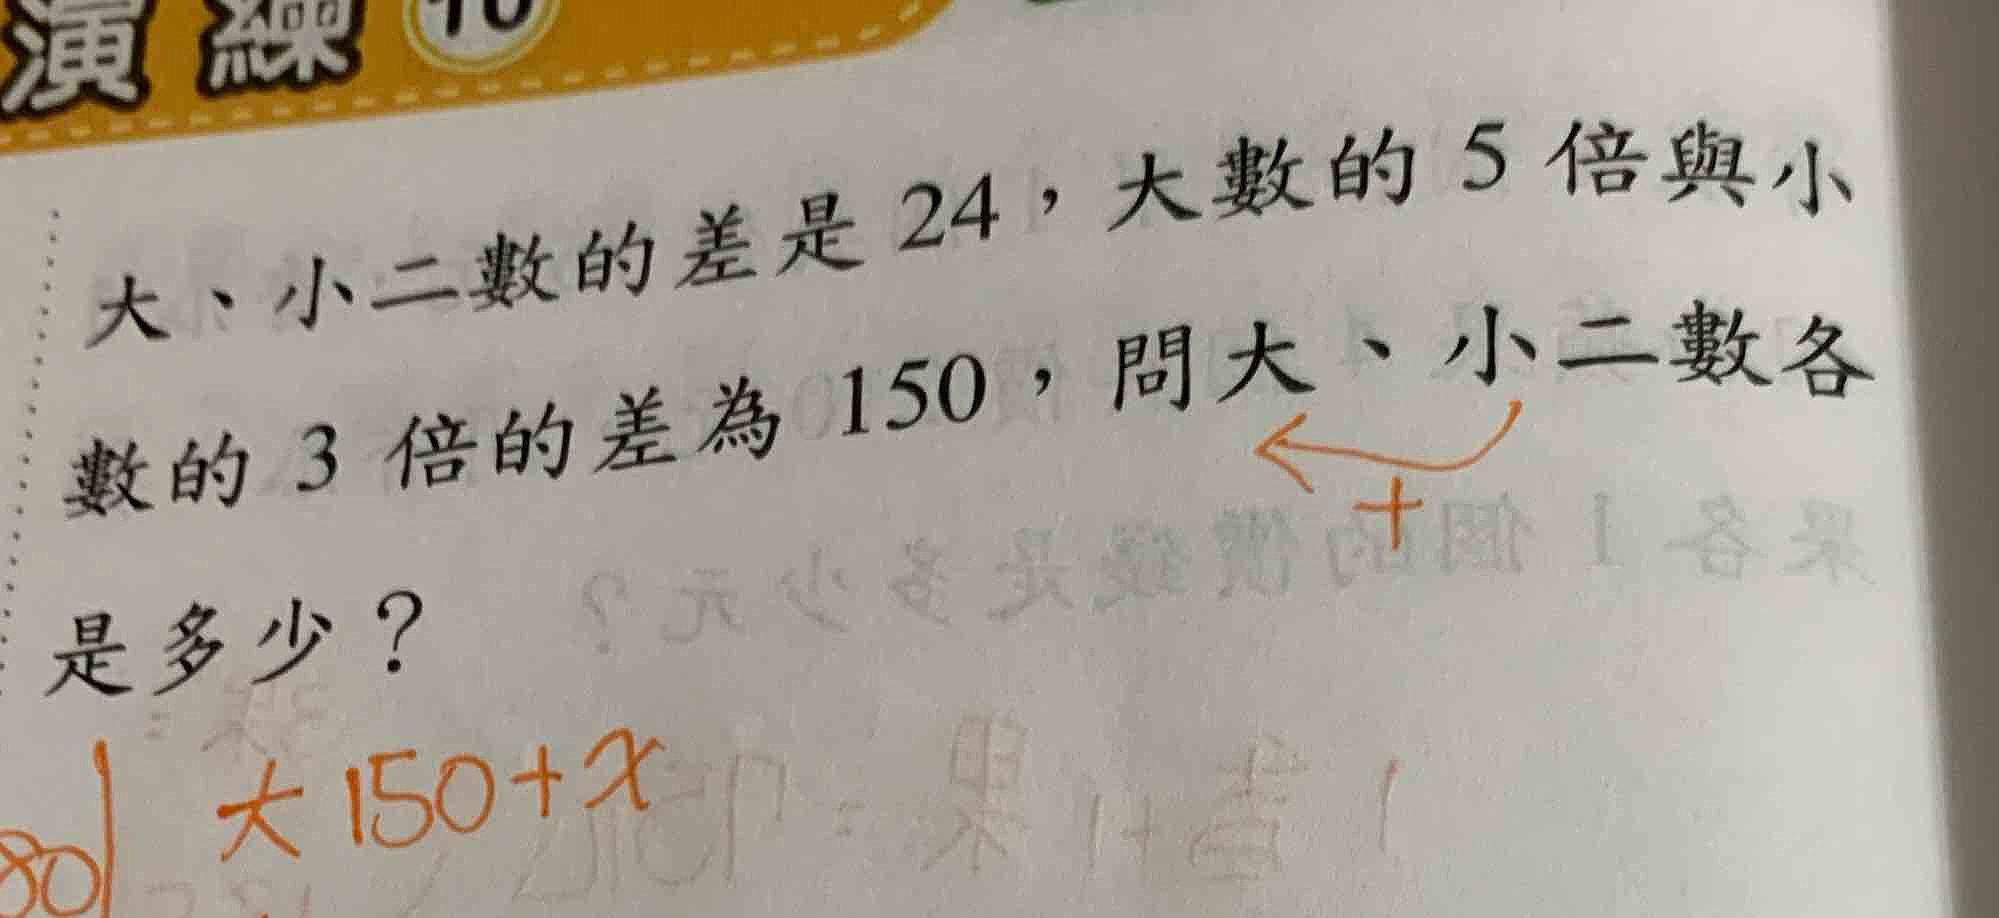 演練 10
大、小二數的差是 24，大數的 5 倍與小
數的 3 倍的差為 150，問大、小二數各
+
是多少？
大 150+x
80